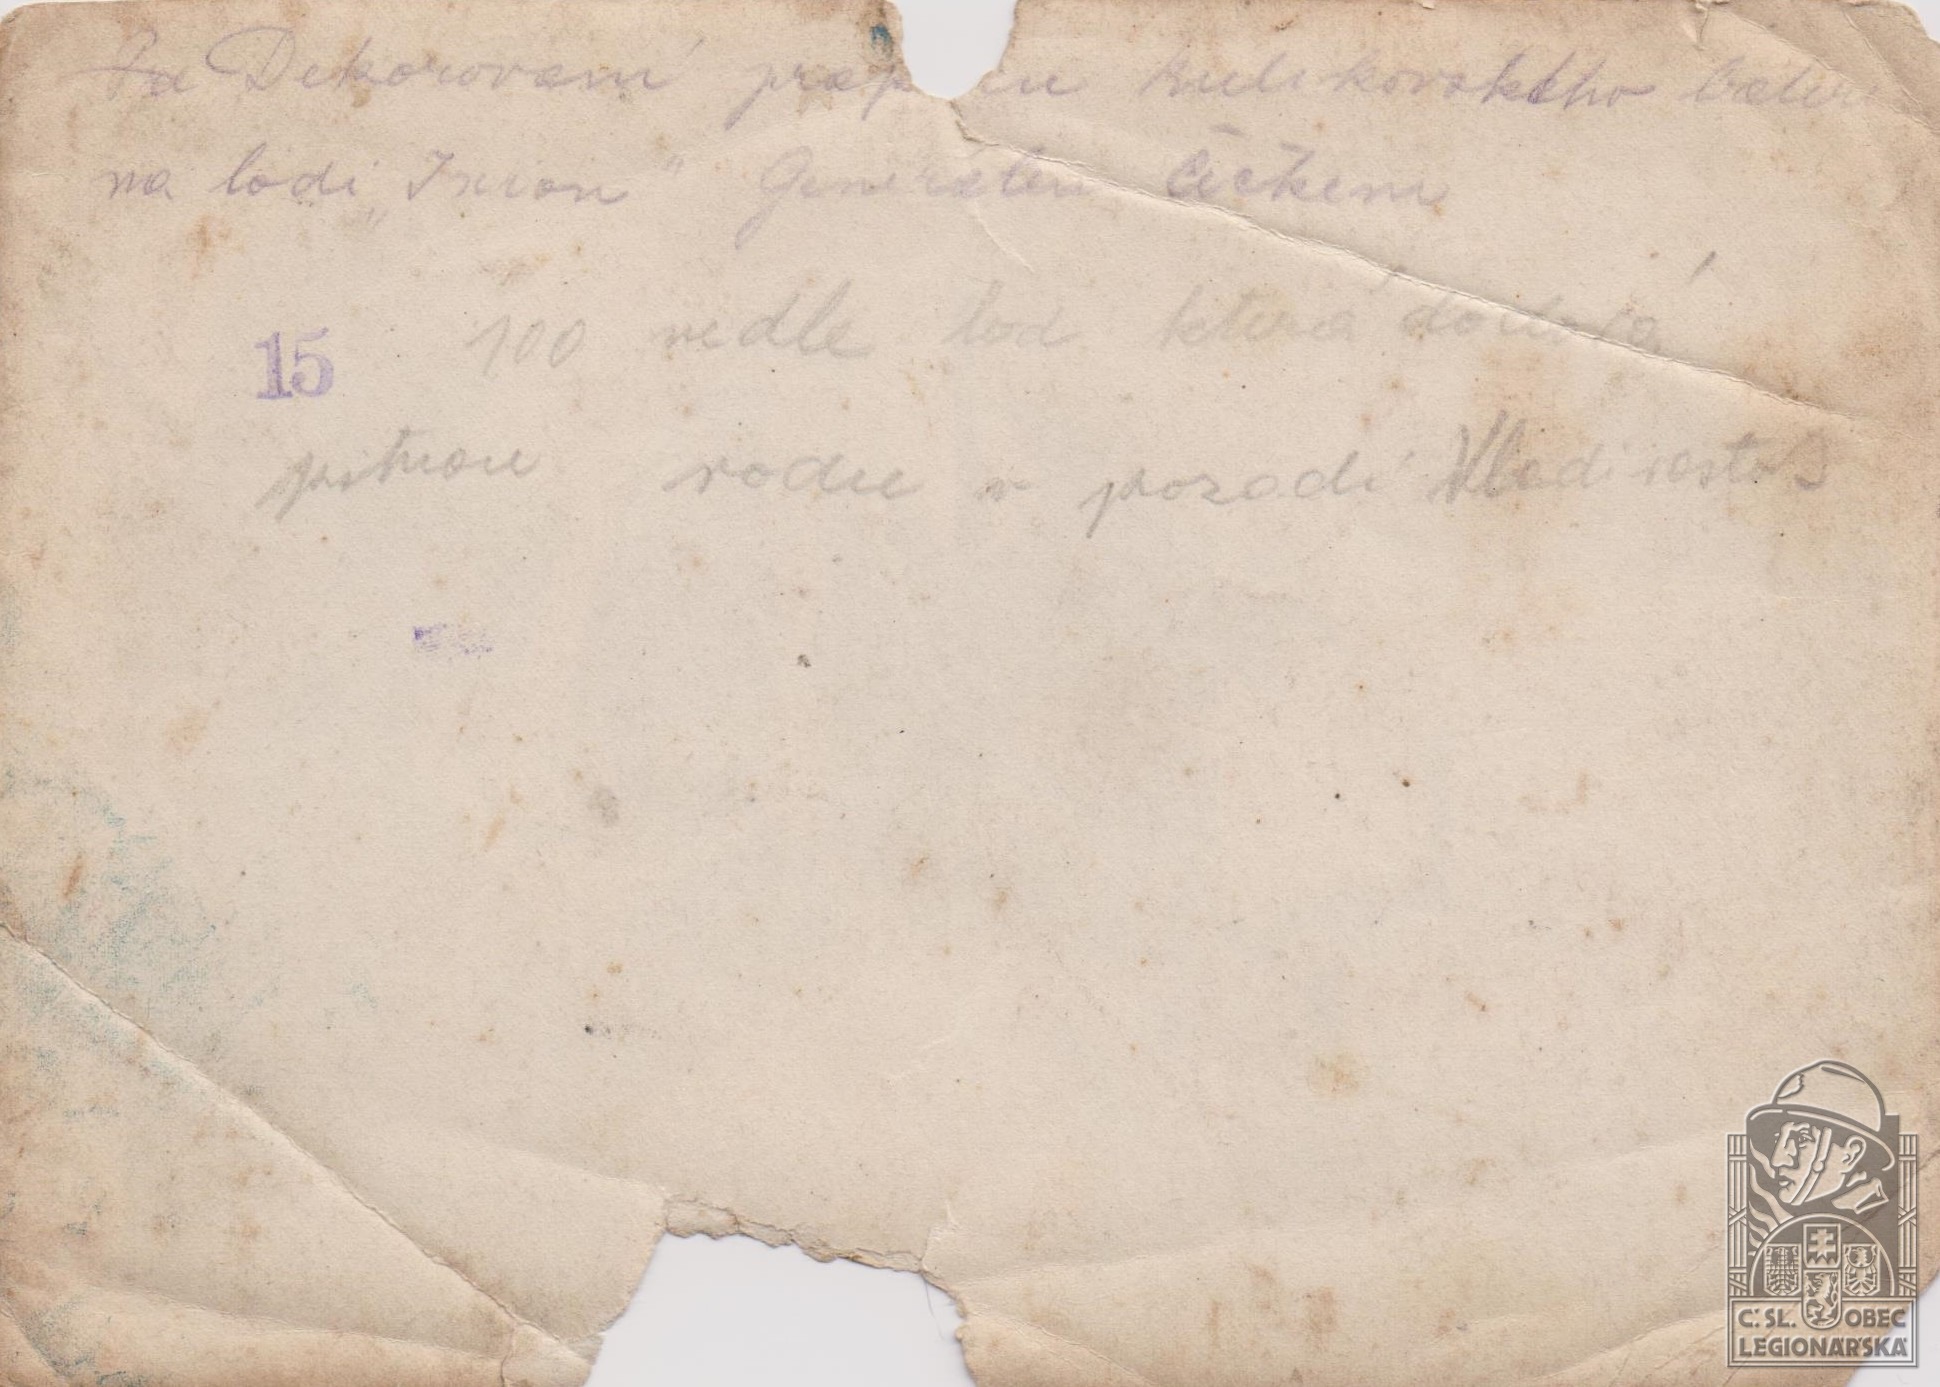 Dekorovaní prap cu Kulikovského
na lodi „Ixion" Generálem Čečkem
15
100 vedle lod která dováží
pitnou vodu v pozadí Vladivostok
Č.SL. OBEC
LEGIONÁŘSKÁ